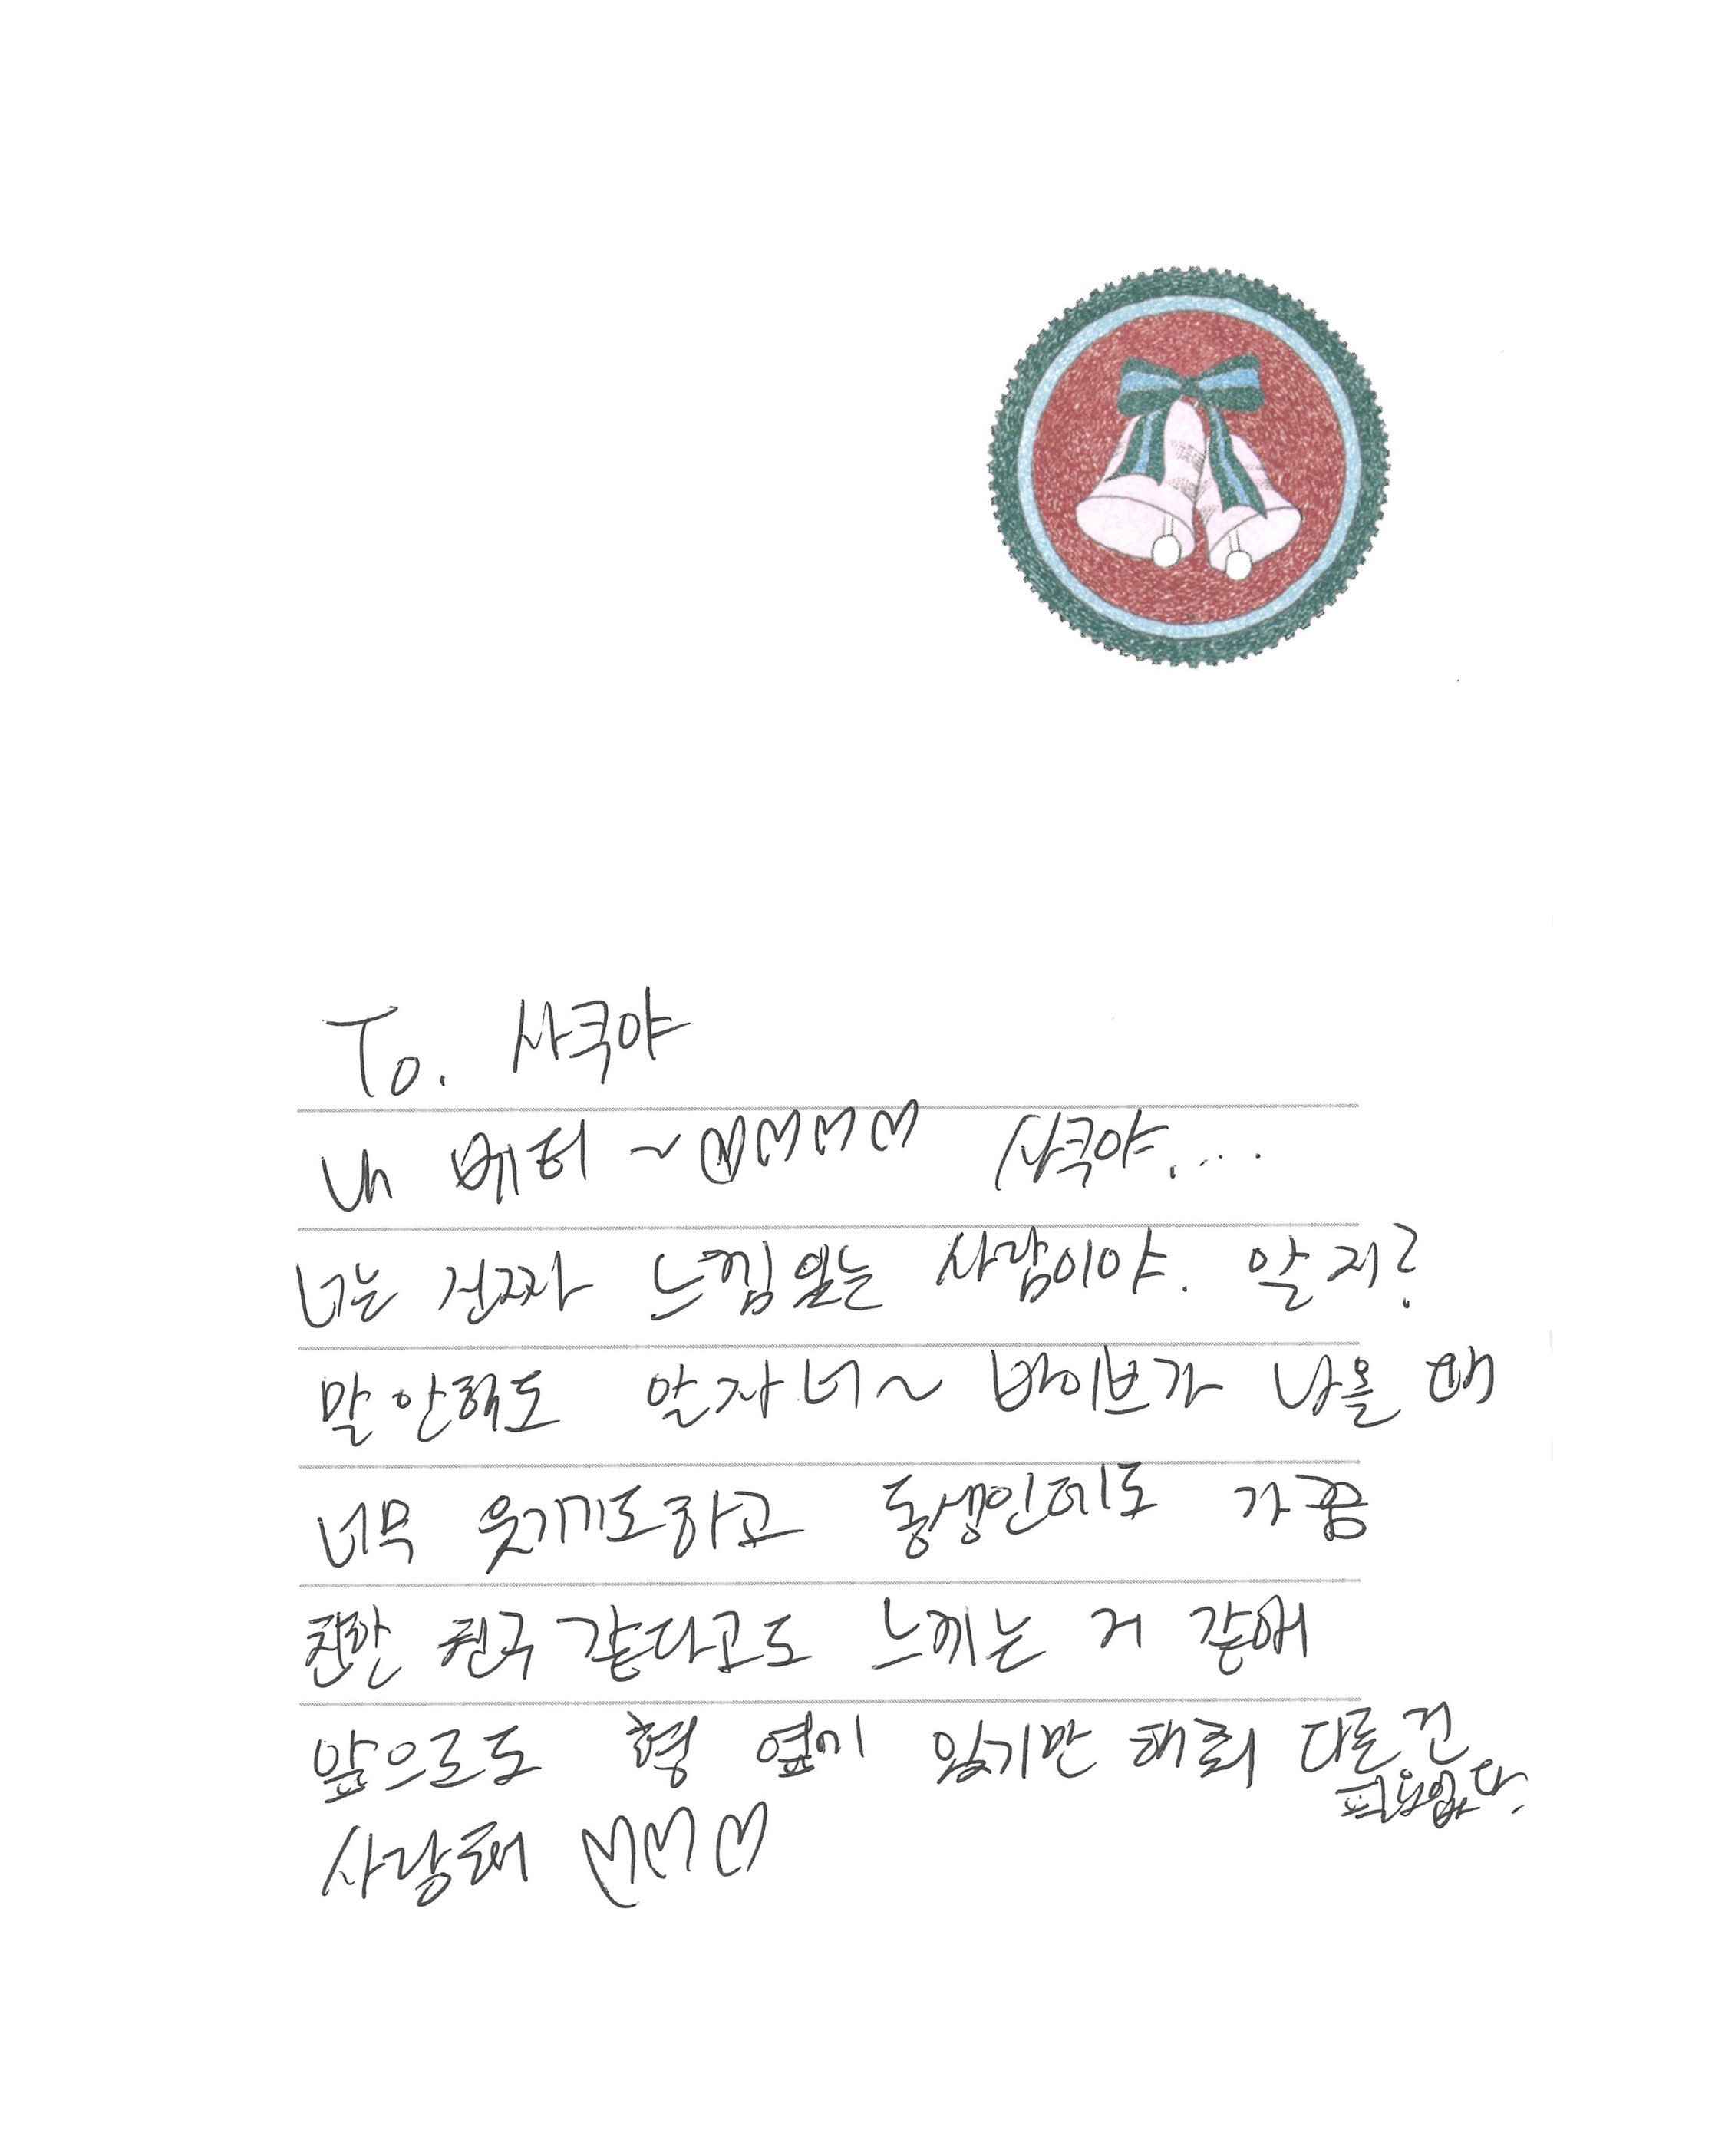 To. 사쿠야
내 베터~♡♡♡♡ 사쿠야....
너는 진짜 느낌있는 사람이야. 알지?
말 안해도 알자너~ 바이브가 나올 때
너무 웃기기도하고 동생인데도 가끔
친한 친구 같다고도 느끼는 거 같애
앞으로도 형 옆에 있기만 해줘 다른건
필요없다.
사랑해 ♡♡♡